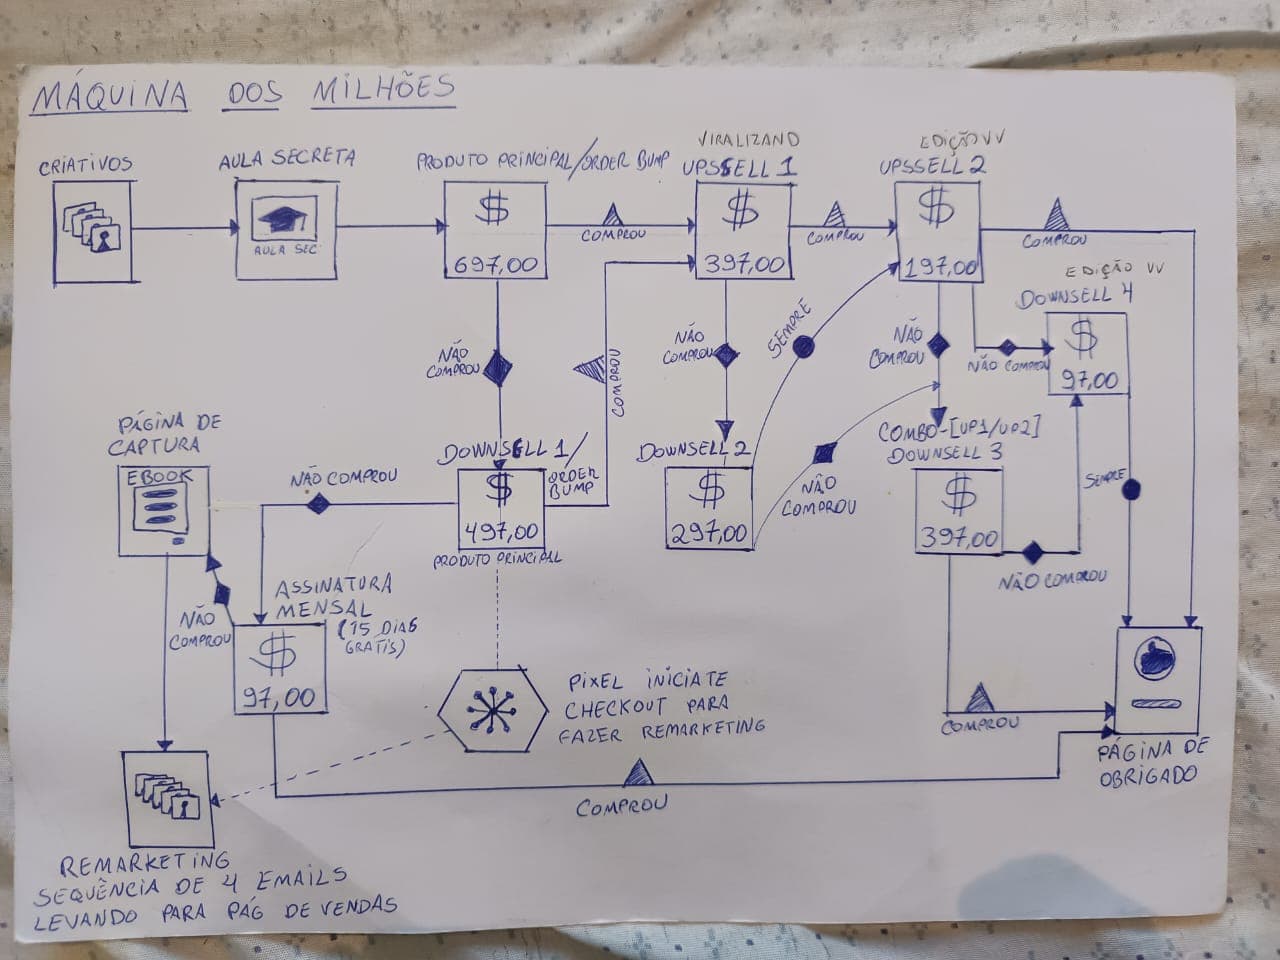 MÁQUINA DOS MILHÕES
CRIATIVOS
AULA SECRETA
AULA SEC
PRODUTO PRINCIPAL/ORDER BUMP
$
697,00
COMPROU
VIRALIZANDO
UPSSELL 1
$
397,00
COMPROU
EDIÇÃO VV
UPSSELL 2
$
197,00
COMPROU
EDIÇÃO VV
DOWNSELL 4
$
97,00
NÃO COMPROU
NÃO
COMPROU
COMPROU
NÃO
COMPROU
SEMPRE
NÃO
COMPROU
PÁGINA DE
CAPTURA
EBOOK
NÃO COMPROU
DOWNSELL 1/
ORDER
BUMP
$
497,00
PRODUTO PRINCIPAL
DOWNSELL 2
$
297,00
NÃO
COMPROU
COMBO-[UP1/UP2]
DOWNSELL 3
$
397,00
NÃO COMPROU
SEMPRE
NÃO
COMPROU
ASSINATURA
MENSAL
(15 DIAS
GRATIS)
$
97,00
PIXEL INICIATE
CHECKOUT PARA
FAZER REMARKETING
COMPROU
COMPROU
PÁGINA DE
OBRIGADO
REMARKETING
SEQUÊNCIA DE 4 EMAILS
LEVANDO PARA PÁG DE VENDAS